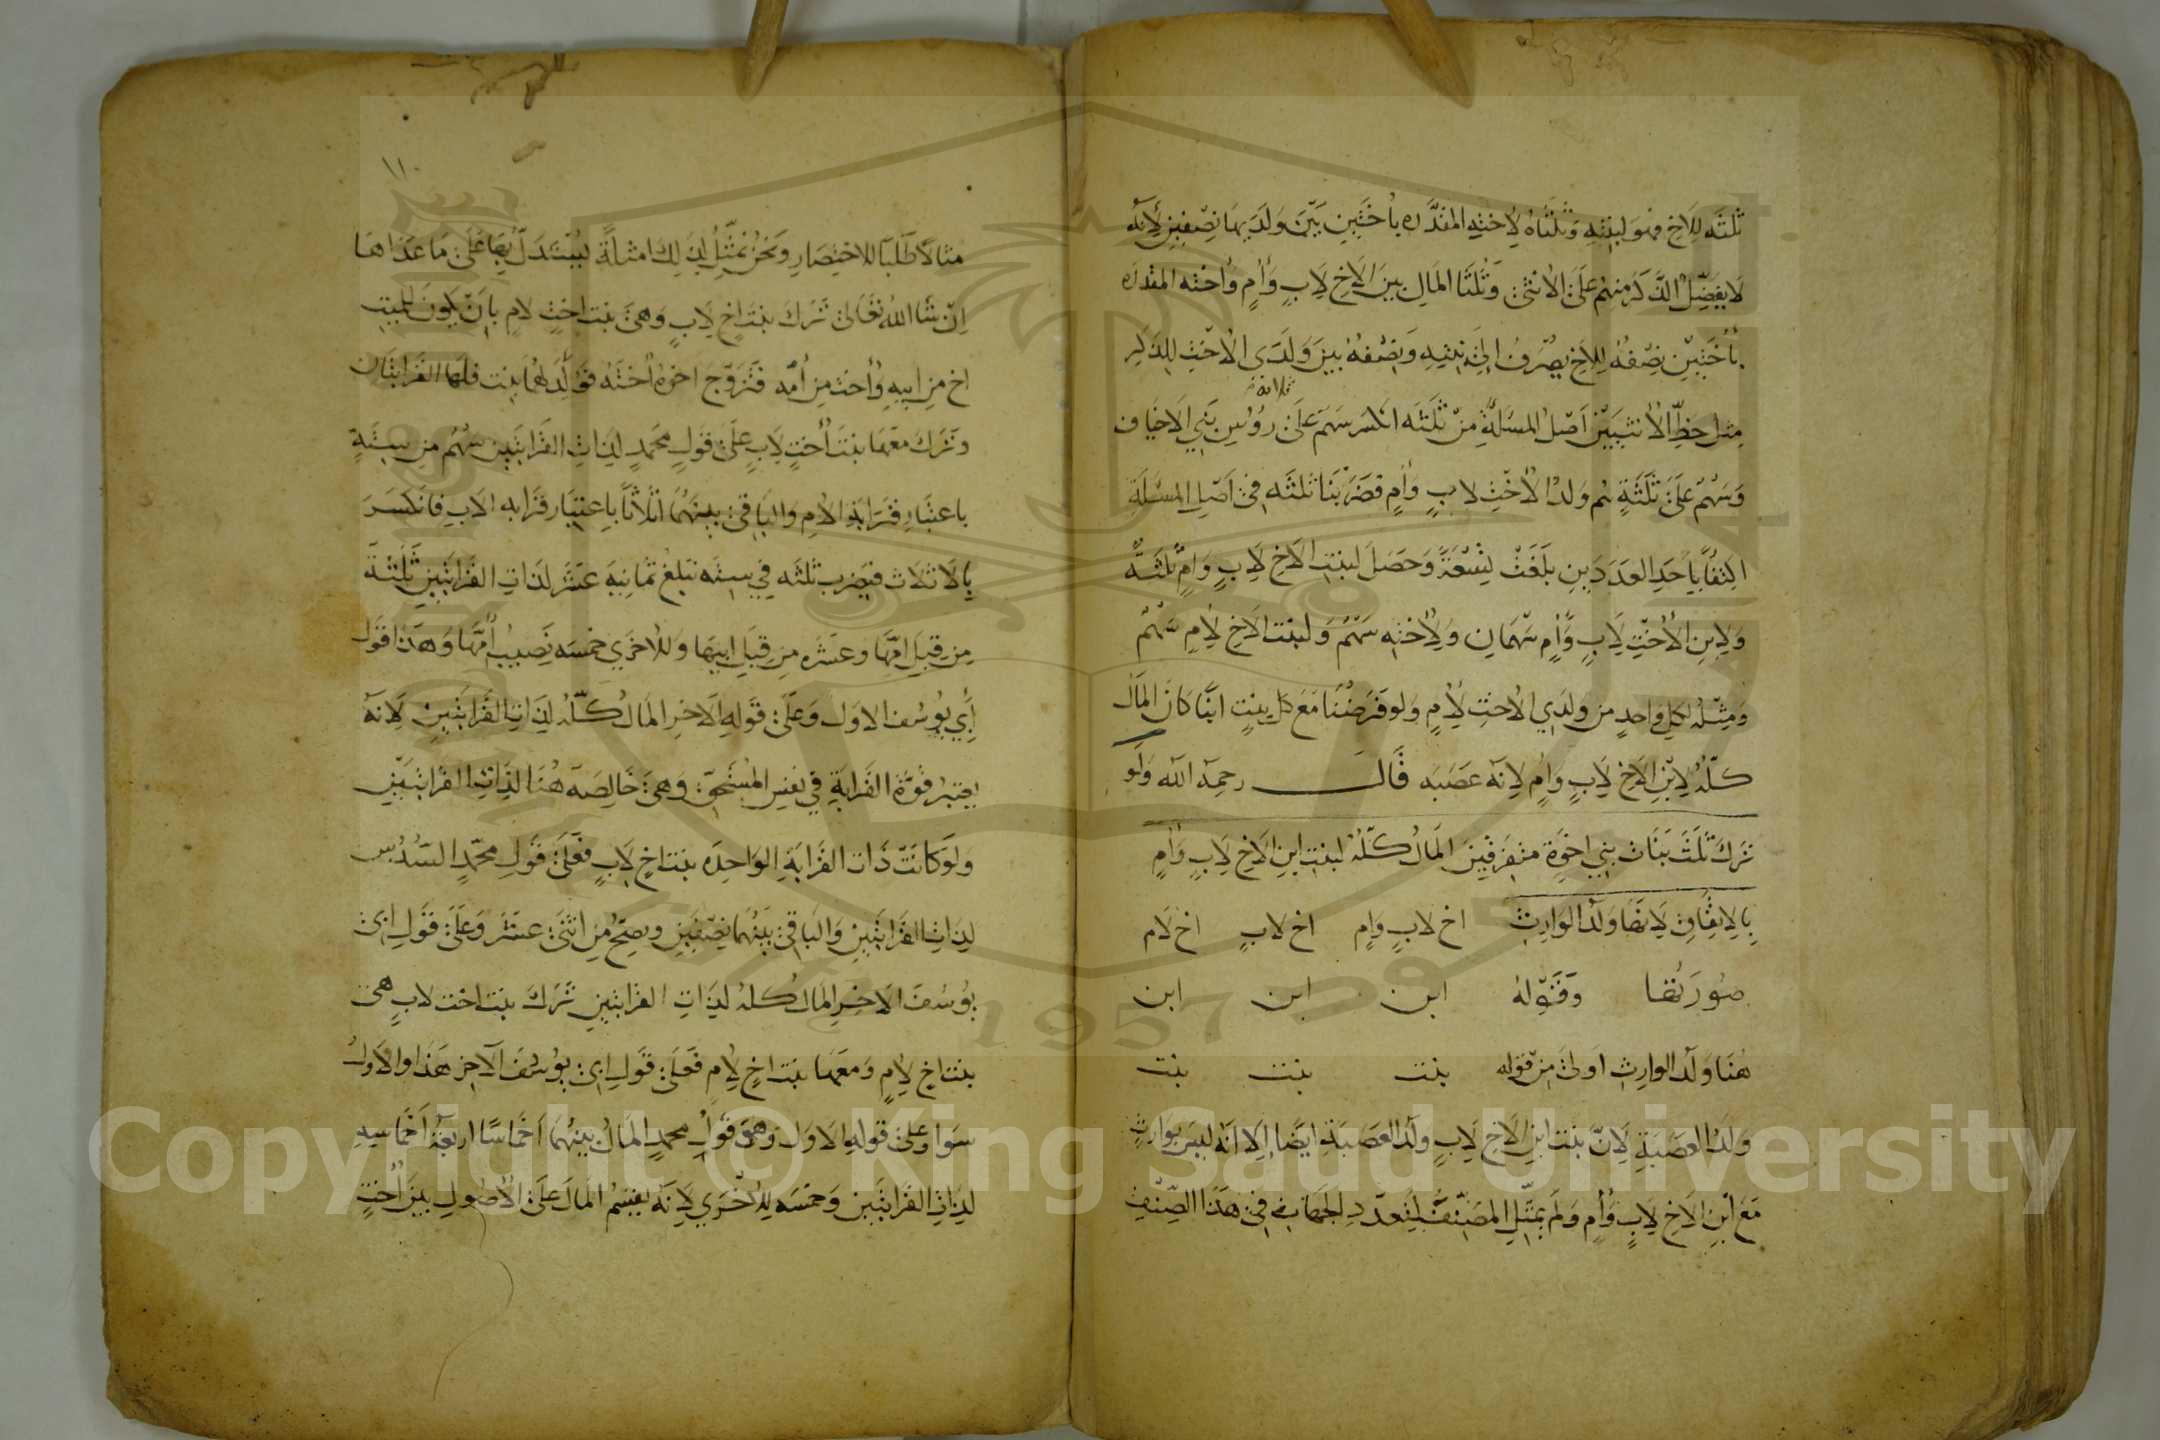 ثلثه للاخ فهو لبنته وثلثاه لاخته المقدره باختين بين ولديها نصفين لانه
لا يفضل الذكر منهم على الانثى وثلثا المال بين الاخ لاب وام واخته المقدره
باختين نصفه للاخ يصرف الى بنته ونصفه بين ولدي الاخت للذكر
مثل حظ الانثيين اصل المسئلة من ثلثه انكسر سهم على رؤس بني الاخياف
ثلاثة
وسهم على ثلثة هم ولد الاخت لاب وام فضربنا ثلثه في اصل المسئلة
اكتفا باحد العددين بلغت تسعة وحصل لبنت الاخ لاب وام ثلثة
ولابن الاخت لاب وام سهمان ولاخته سهم ولبنت الاخ لام سهم
ومثله لكل واحد من ولدي الاخت لام ولو فرضنا مع كل بنت ابنا كان المال
كله لابن الاخ لاب وام لانه عصبه قال رحمه الله ولو
ترك ثلث بنات بني اخوة متفرقين المال كله لبنت ابن الاخ لاب وام
بالاتفاق لانها ولد الوارث اخ لاب وام اخ لاب اخ لام
صورتها وقوله ابن ابن ابن
هنا ولد الوارث اولى من قوله بنت بنت بنت
ولد العصبة لان بنت ابن الاخ لاب ولد العصبة ايضا الا انه ليس بوارث
مع ابن الاخ لاب وام ولم يمثل المصنف لتعدد الجهات في هذا الصنف
١١٠
مثالا طلبا للاختصار ونحن نمثل لذلك امثلة ليستدل بها على ما عداها
ان شا الله تعالى ترك بنت اخ لاب وهى بنت اخت لام بان يكون للميت
اخ من ابيه واخت من امه فتزوج اخوه اخته فولد لهما بنت فلها القرابتان
وترك معها بنت اخت لاب على قول محمد لذات القرابتين سهم من ستة
باعتبار قرابة الام والباقي بينهما اثلاثا باعتبار قرابه الاب فانكسر
بالاثلاث فيضرب ثلثه في سته تبلغ ثمانية عشر لذات القرابتين ثلثة
من قبل امها وعشره من قبل ابيها وللاخرى خمسه نصيب امها وهذا قول
ابي يوسف الاول وعلى قوله الاخر المال كله لذات القرابتين لانه
يعتبر قوة القرابة في نفس المستحق وهى خالصه هنا لذات القرابتين
ولو كانت ذات القرابة الواحده بنت اخ لاب فعلى قول محمد السدس
لذات القرابتين والباقي بينهما نصفين وتصح من اثنى عشر وعلى قول ابى
يوسف الاخر المال كله لذات القرابتين ترك بنت اخت لاب هى
بنت اخ لام ومعها بنت اخ لام فعلى قول ابى يوسف الاخر هذا والاول
سوا وعلى قوله الاول وهو قول محمد المال بينهما اخماسا اربعة اخماسه
لذات القرابتين وخمسه للاخرى لانه يقسم المال على الاصول بين اخت
Copyright © King Saud University
1957